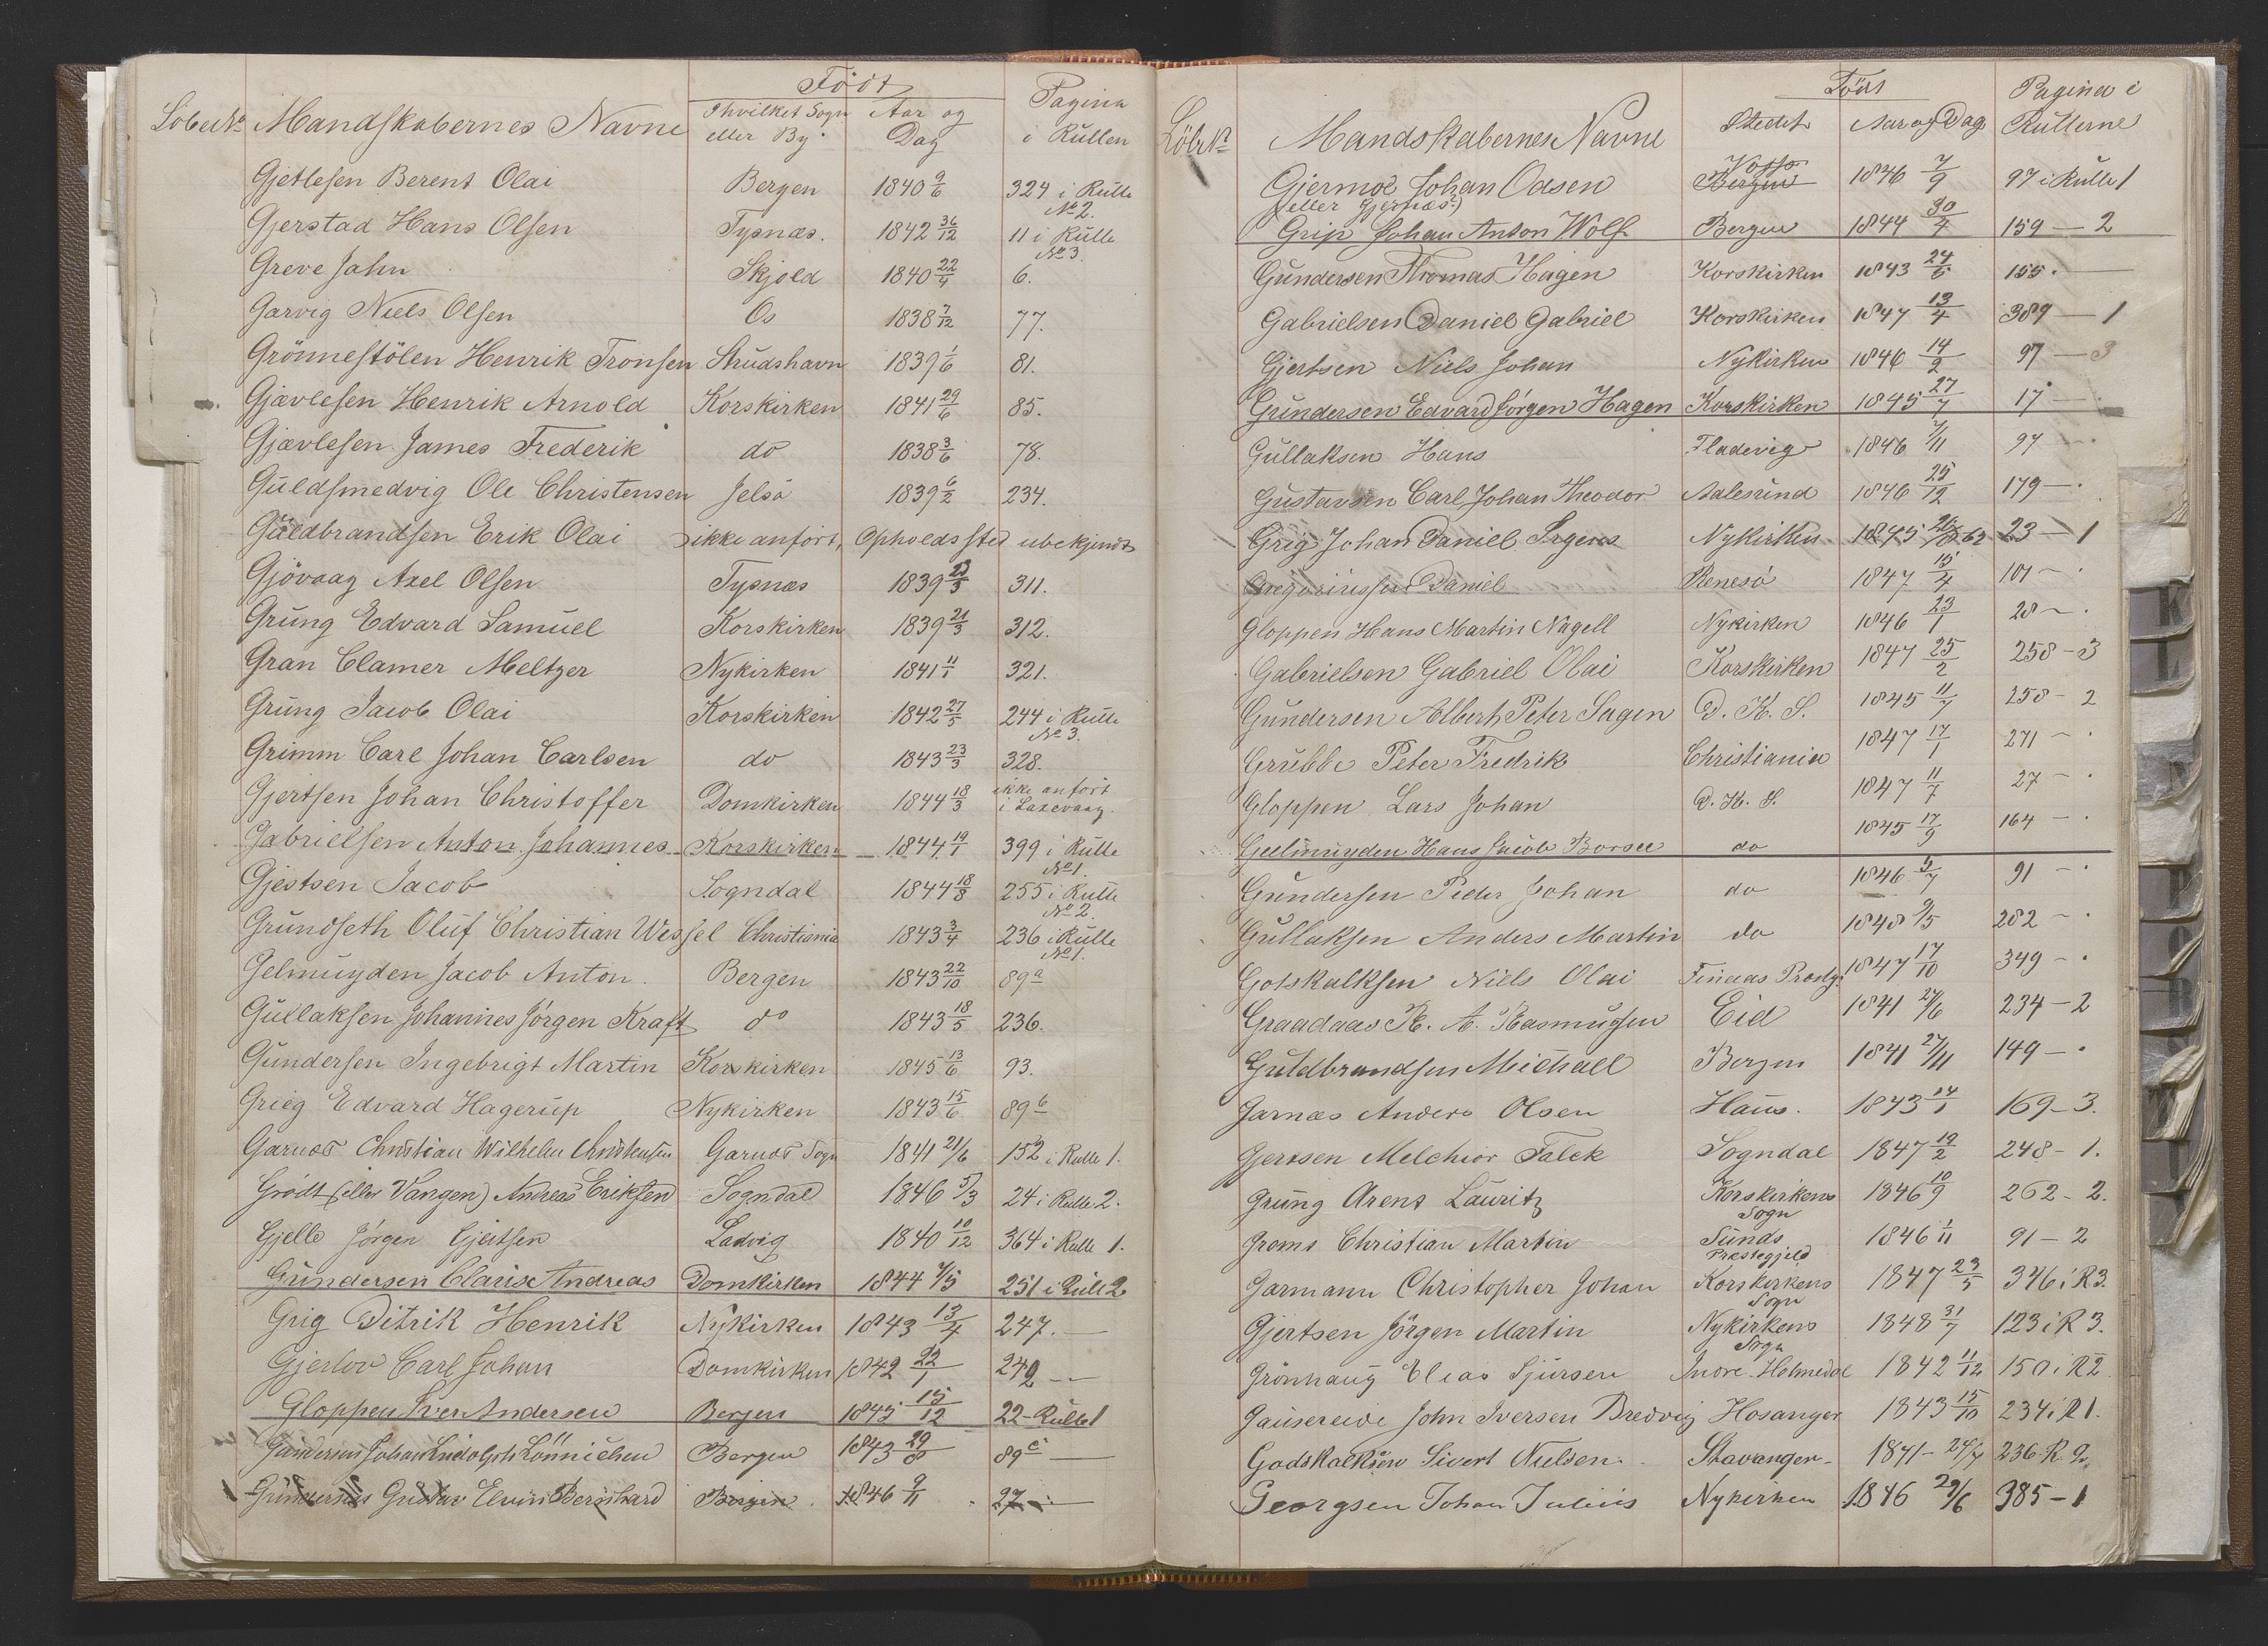 Født
LøbeNo Mandskabernes Navne Ihvilket Sogn eller By Aar og Dag Pagina i Rullen
Gjetlesen Berent Olai Bergen 1840 9/6 324 i Rulle No 2.
Gjerstad Hans Olsen Tysnæs. 1842 /12 11 i Rulle No 3.
Greve Jahn Skjold 1840 22/4 6.
Garvig Niels Olsen Os 1838 7/12 77.
Grönnestölen Henrik Tronsen Strudshavn 1839 1/6 81.
Gjævlesen Henrik Arnold Korskirken 1841 29/6 85.
Gjævlesen James Frederik do 1838 3/6 78.
Guldsmedvig Ole Christensen Jelsö 1839 6/2 234.
Guldbrandsen Erik Olai ikke anfört, Opholdssted ubekjendt
Gjövaag Axel Olsen Tysnæs 1839 /3 311.
Grung Edvard Samuel Korskirken 1839 21/3 312.
Gran Clamer Meltzer Nykirken 1841 11/1 321.
Grung Jacob Olai Korskirken 1842 27/5 244 i Rulle No 3.
Grimm Carl Johan Carlsen do 1843 23/3 328.
Gjertsen Johan Christoffer Domkirken 1844 18/3 ikke anfört i Laxevaag.
Gabrielsen Anton Johannes Korskirken 1844 19/1 399 i Rulle No 1.
Gjestsen Jacob Sogndal 1844 18/8 255 i Rulle No 2.
Grundseth Oluf Christian Wessel Christiania 1843 3/4 236 i Rulle No 1.
Gelmuyden Jacob Anton. Bergen 1843 22/10 89 a
Gullaksen Johannes Jörgen Kraft do 1843 18/5 236.
Gundersen Ingebrigt Martin Korskirken 1845 13/6 93.
Grieg Edvard Hagerup Nykirken 1843 15/6 89 b
Garnæs Christian Wilhelm Christensen Garnæs Sogn 1841 21/6 152 i Rulle 1.
Grödt (eller Vangen) Andreas Eriksen Sogndal 1846 5/3 24 i Rulle 2.
Gjelle Jörgen Gjertsen Ladvig 1840 10/12 364 i Rulle 1.
Gundersen Claris Andreas Domkirken 1844 4/5 251 i Rull 2
Grig Ditrik Henrik Nykirken 1843 13/4 247. —
Gjerlov Carl Johan Domkirken 1842 22/1 249 —
Gloppen Iver Andersen Bergen 1845 15/12 22 - Rulle 1
Gundersen Johan Ludolph Lönnichen Bergen 1843 29/8 89 c —
Gundersen Gustav Elvin Bernhard Bergen. 1846 9/11 27 —
Født
LöbNo Mandskabernes Navne Stedet Aar og Dag Pagina i Rullerne
Gjermoe Johan Odsen Bergen Voss 1846 7/9 97 i Rulle 1
(eller Gjernæs?)
Grip Johan Anton Wolf Bergen 1844 30/4 159 — 2
Gundersen Thomas Hagen Korskirken 1843 24/6 155. —
Gabrielsen Daniel Gabriel Korskirken 1847 13/4 389 — 1
Gjertsen Niels Johan Nykirken 1846 14/2 97 — 3
Gundersen Edvard Jörgen Hagen Korskirken 1845 27/7 17 — .
Gullaksen Hans Fladevig 1846 7/11 97 — .
Gustavsen Carl Johan Theodor Aalesund 1846 25/12 179 — .
Grig Johan Daniel Nykirken 1845 23 — 1
Gregoriussen Daniel Renesö 1847 15/4 101 — .
Gloppen Hans Martin Nagell Nykirken 1846 23/1 28 — .
Gabrielsen Gabriel Olai Korskirken 1847 25/2 258 — 3
Gundersen Albert Peter Sagen D. K. S. 1845 11/7 258 — 2
Grubbe Peter Fredrik Christiania 1847 17/1 271 — .
Gloppen Lars Johan D. K. S. 1847 11/7 27 — .
Geelmuyden Hans Jacob Borse do 1845 17/9 164 — .
Gundersen Peder Johan do 1846 5/7 91 — .
Gullaksen Anders Martin do 1848 9/5 282 — .
Gotskalksen Niels Olai Finaas Prstg. 1847 17/10 349 — .
Graadaas R. A. Rasmusen Eid 1841 27/6 234 — 2
Guldbrandsen Michael Bergen 1841 27/11 149 — .
Jarnæs Anders Olsen Haus. 1843 14/1 169 — 3.
Gjertsen Melchior Falck Sogndal 1847 19/2 248 — 1.
Grung Arent Lauritz Korskirkens Sogn 1846 10/9 262 — 2.
Groms Christian Martin Sunds Præstegjeld 1846 1/11 91 — 2
Garmann Christopher Johan Korskirkens Sogn 1847 23/5 346 i R 3.
Gjertsen Jörgen Martin Nykirkens Sogn 1848 31/7 123 i R 3.
Grönhaug Elias Sjursen Indre Holmedal 1842 11/12 150 i R 2
Gausereide John Iversen Bredvig Hosanger 1843 15/10 234 i R 1.
Godskalksen Sivert Nielsen. Stavanger 1841 — 24/7 236 R. 2.
Georgsen Johan Julius Nykirken 1846 29/6 385 — 1
K
L